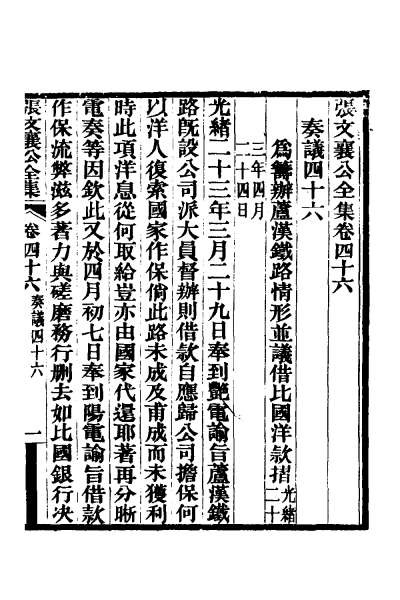 張文襄公全集卷四十六
奏議四十六
為籌辦蘆漢鐵路情形並議借比國洋款摺光緒二十
三年四月二十四日
光緒二十三年三月二十九日奉到豔電諭旨蘆漢鐵
路旣設公司派大員督辦則借款自應歸公司擔保何
以洋人復索國家作保倘此路未成及甫成而未獲利
時此項洋息從何取給豈亦由國家代還耶著再分晰
電奏等因欽此又於四月初七日奉到陽電諭旨借款
作保流弊滋多著力與磋磨務行删去如比國銀行決
張文襄公全集 卷四十六 奏議四十六 一